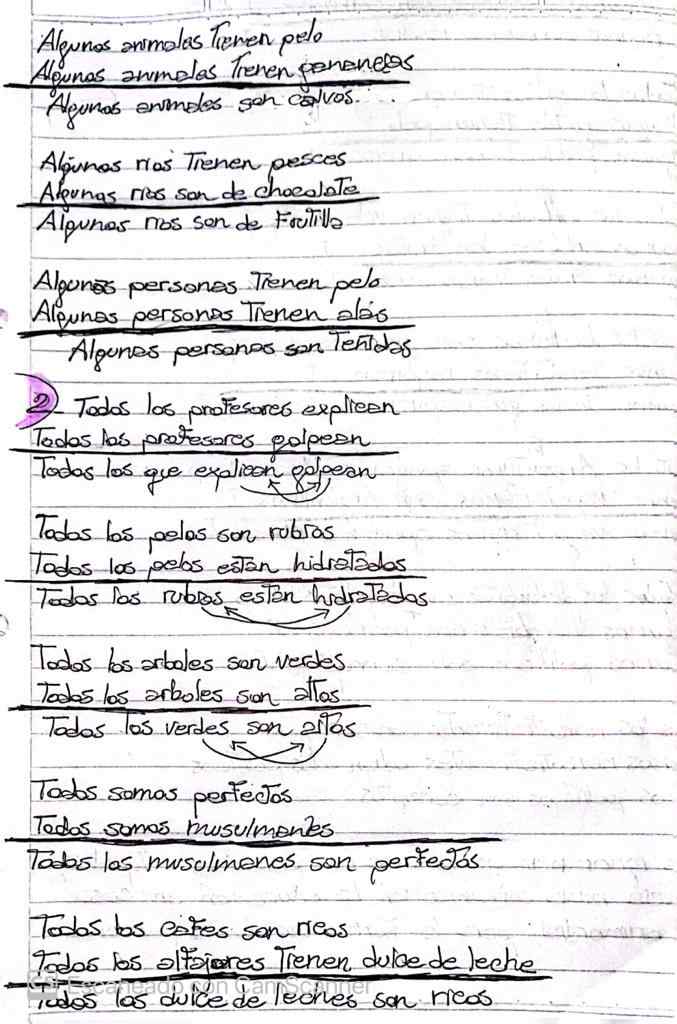 Algunos animales Tienen pelo
Algunos animales Tienen
Algunos animales son calvos.
Algunos rios Tienen pesces
Algunos rios son de chocolate
Algunos rios son de Frutilla
Algunas personas Tienen pelo
Algunas personas Tienen alas
Algunas personas son Teñidas
2- Todos los profesores explican
Todos los profesores golpean
Todos los que explican golpean
Todos los pelos son rubios
Todos los pelos están hidratados
Todos los rubios están hidratados
Todos los arboles son verdes
Todos los arboles son altos
Todos los verdes son altos
Todos somos perfectos
Todos somos musulmanes
Todos los musulmanes son perfectos
Todos los cafes son ricos
Todos los alfajores Tienen dulce de leche
Escaneado con CamScanner
Todos los dulce de leches son ricos